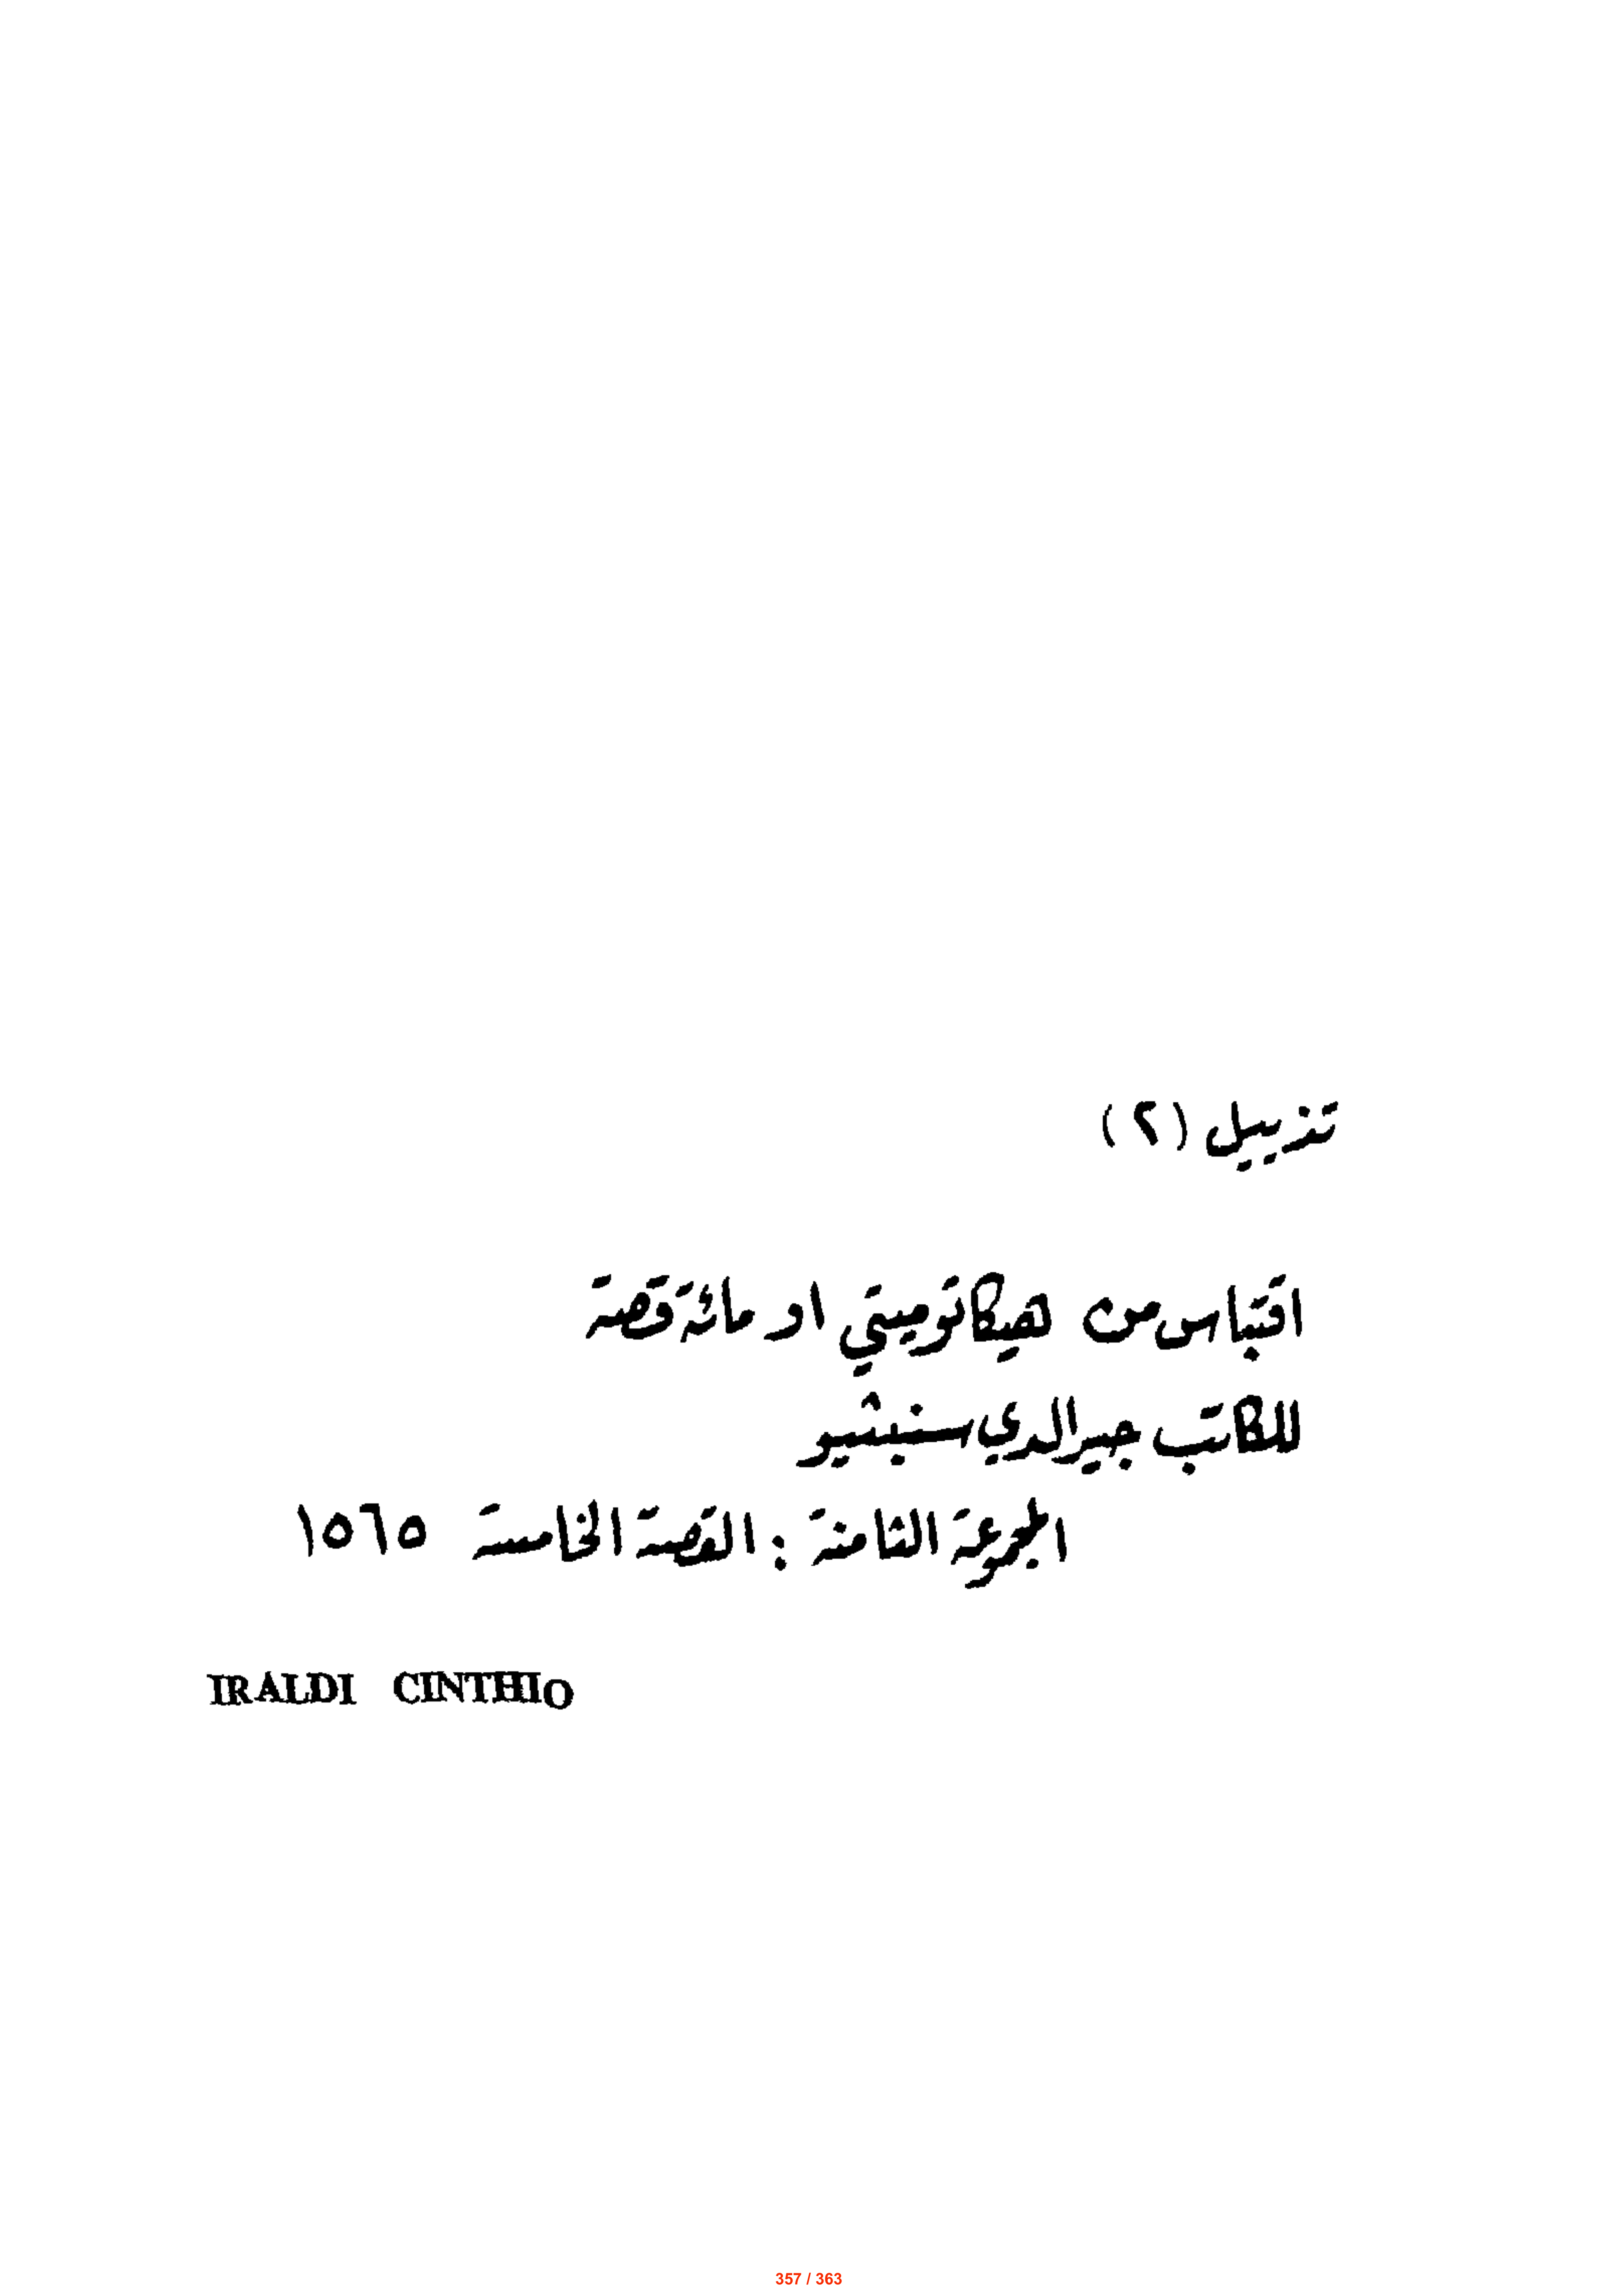 تذييل (٢)
اقتباس من هيكاتوميتي او مائة قصة
للكاتب جيرالدي سنيثيو
المجموعة الثامنة : القصة الخامسة ١٥٦٥
IRALDI CINTHIO
357 / 363